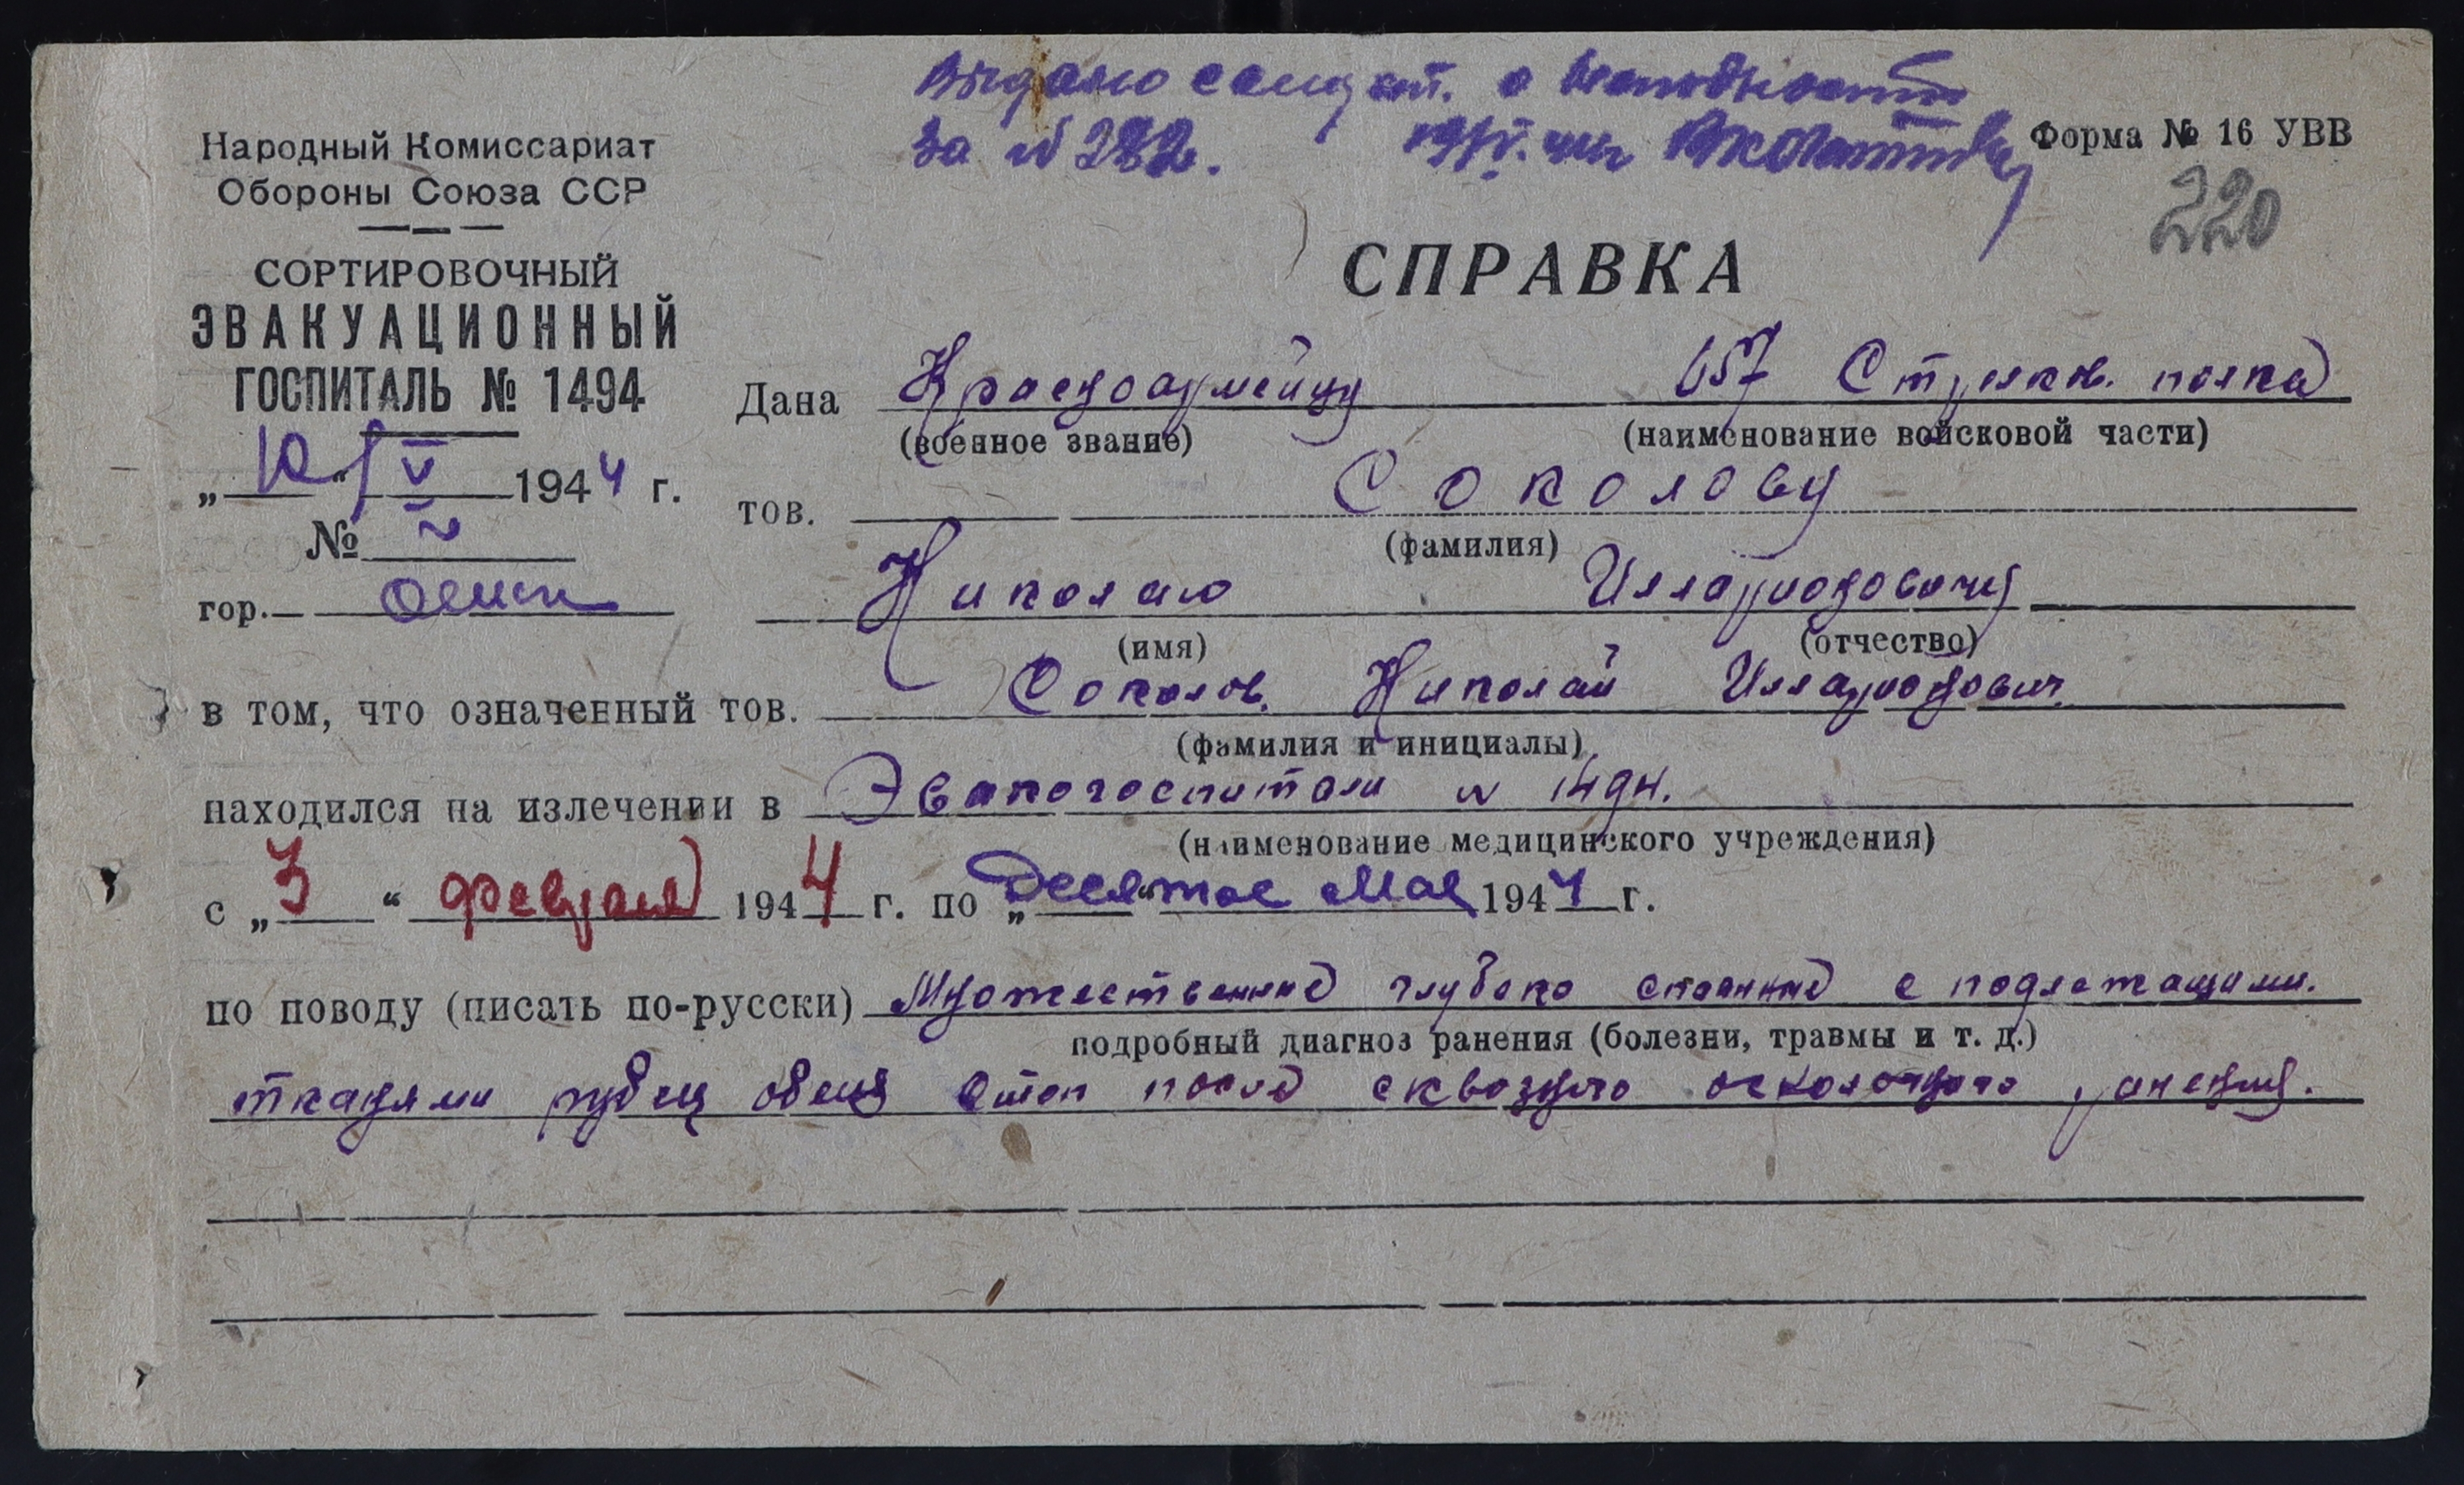 Выдано свидет. о негодности
за № 282.
Форма № 16 УВВ
220
Народный Комиссариат
Обороны Союза ССР
СОРТИРОВОЧНЫЙ
ЭВАКУАЦИОННЫЙ
ГОСПИТАЛЬ № 1494
„10“ V 1944 г.
№
гор. Омск
СПРАВКА
Дана Красноармейцу 657 Стрелков. полка
(военное звание) (наименование войсковой части)
тов. Соколову
(фамилия)
Николаю Илларионовичу
(имя) (отчество)
в том, что означенный тов. Соколов Николай Илларионович
(фамилия и инициалы)
находился на излечении в Эвакогоспитале № 1494.
(наименование медицинского учреждения)
с „3“ февраля 1944 г. по „Десятое“ Мая 1944 г.
по поводу (писать по-русски) Множественные глубоко спаянные с подлежащими
подробный диагноз ранения (болезни, травмы и т. д.)
тканями рубец обеих стоп после сквозного осколочного ранения.